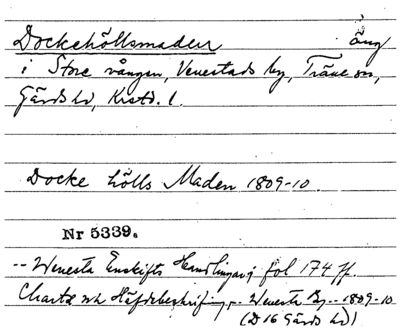 Dockehöllsmaden äng
i Store vången, Venestads by, Träne sn,
Gärds hd, Krstd. l.
Docke hölls Maden 1809-10.
Nr 5339.
-- Wenesta Enskifts Handlingar; fol 174 ff.
Charta och Häfdebeskrifning -- Wenesta By -- 1809-10
(D 16 Gärds hd)